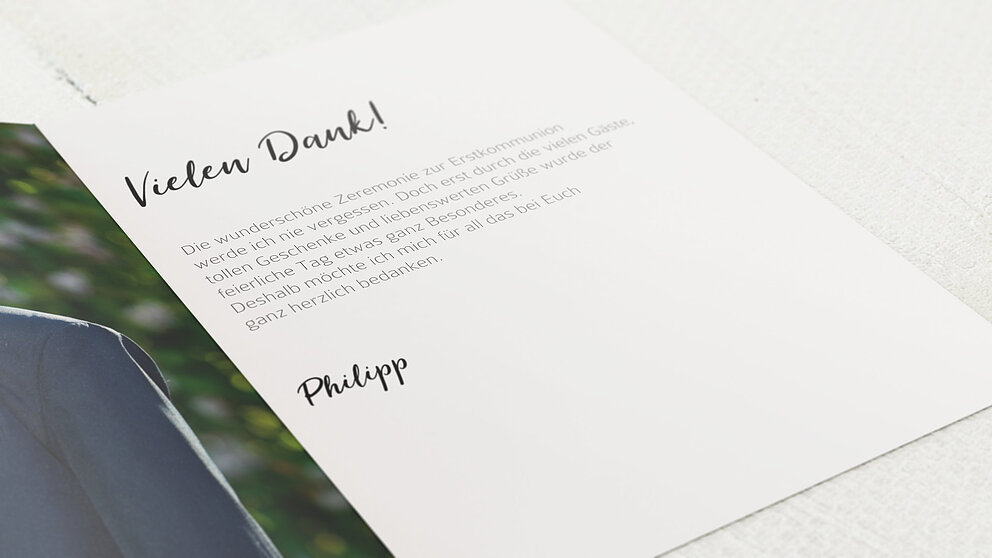 Vielen Dank!
Die wunderschöne Zeremonie zur Erstkommunion
werde ich nie vergessen. Doch erst durch die vielen Gäste,
tollen Geschenke und liebenswerten Grüße wurde der
feierliche Tag etwas ganz Besonderes.
Deshalb möchte ich mich für all das bei Euch
ganz herzlich bedanken.
Philipp